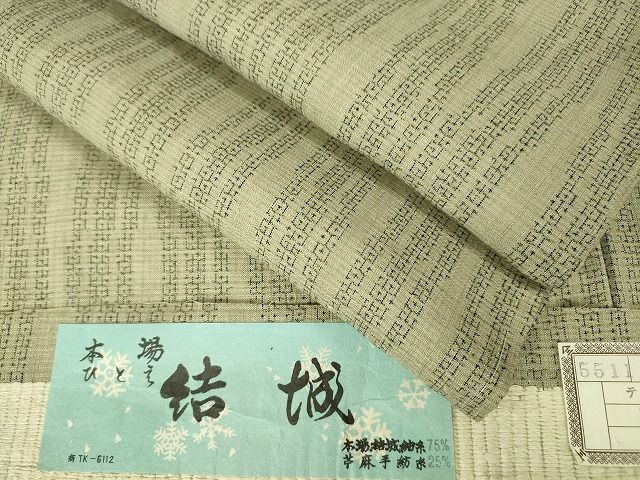 本場
ひとえ
結城
本場結城紬糸75%
苧麻手紡糸25%
商TK-6112
5511
テ